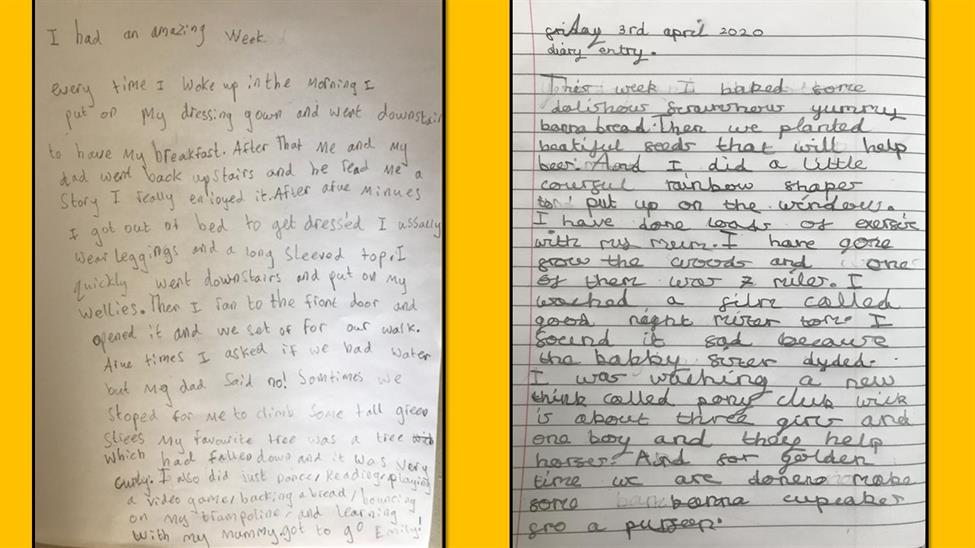 I had an amazing week
every time I woke up in the morning I
put on my dressing gown and went downstair
to have my breakfast. After that me and my
dad went back upstairs and he read me a
story I really enjoyed it. After afue minues
I got out of bed to get dressed I ussally
wear leggings and a long sleeved top. I
quickly went downstairs and put on my
wellies. Then I ran to the front door and
opened it and we set of for our walk.
Afue times I asked if we had water
but my dad said no! Somtimes we
stoped for me to climb some tall green
My favourite tree was a tree
which had fallen down and it was very
curly. I also did just dance/Reading/playing
a video game/backing a bread/bouncing
on my trampoline/and learning
with my mummy. got to go Emily!
friday 3rd april 2020
diary entry.
This week I baked some
delishous yummy
banna bread. Then we planted
beatiful seeds that will help
bees. And I did a little
courful rainbow shapes
to put up on the windows.
I have done loads of exersie
with my mum. I have gone
frow the woods and one
of them was 7 miles. I
wached a film called
good night mister tom. I
found it sad because
the babby sister dyded.
I was waching a new
think called pony club wick
is about three girls and
one boy and they help
horses. And for golden
time we are doner make
some banna cupcakes
fro a